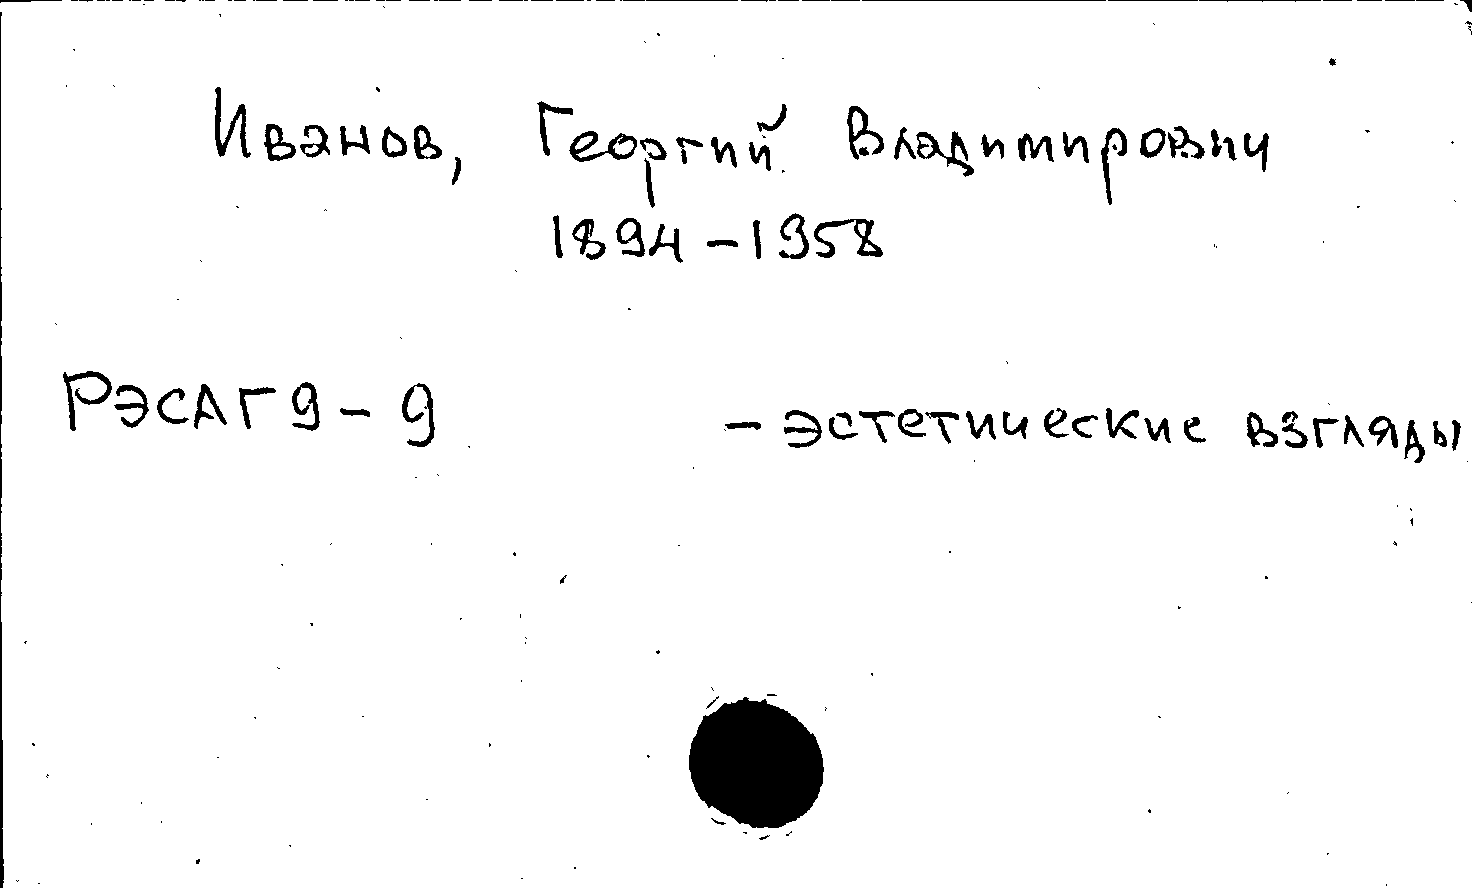 Иванов, Георгий Владимирович
1894-1958
РЭСАГ9-9 - эстетические взгляды